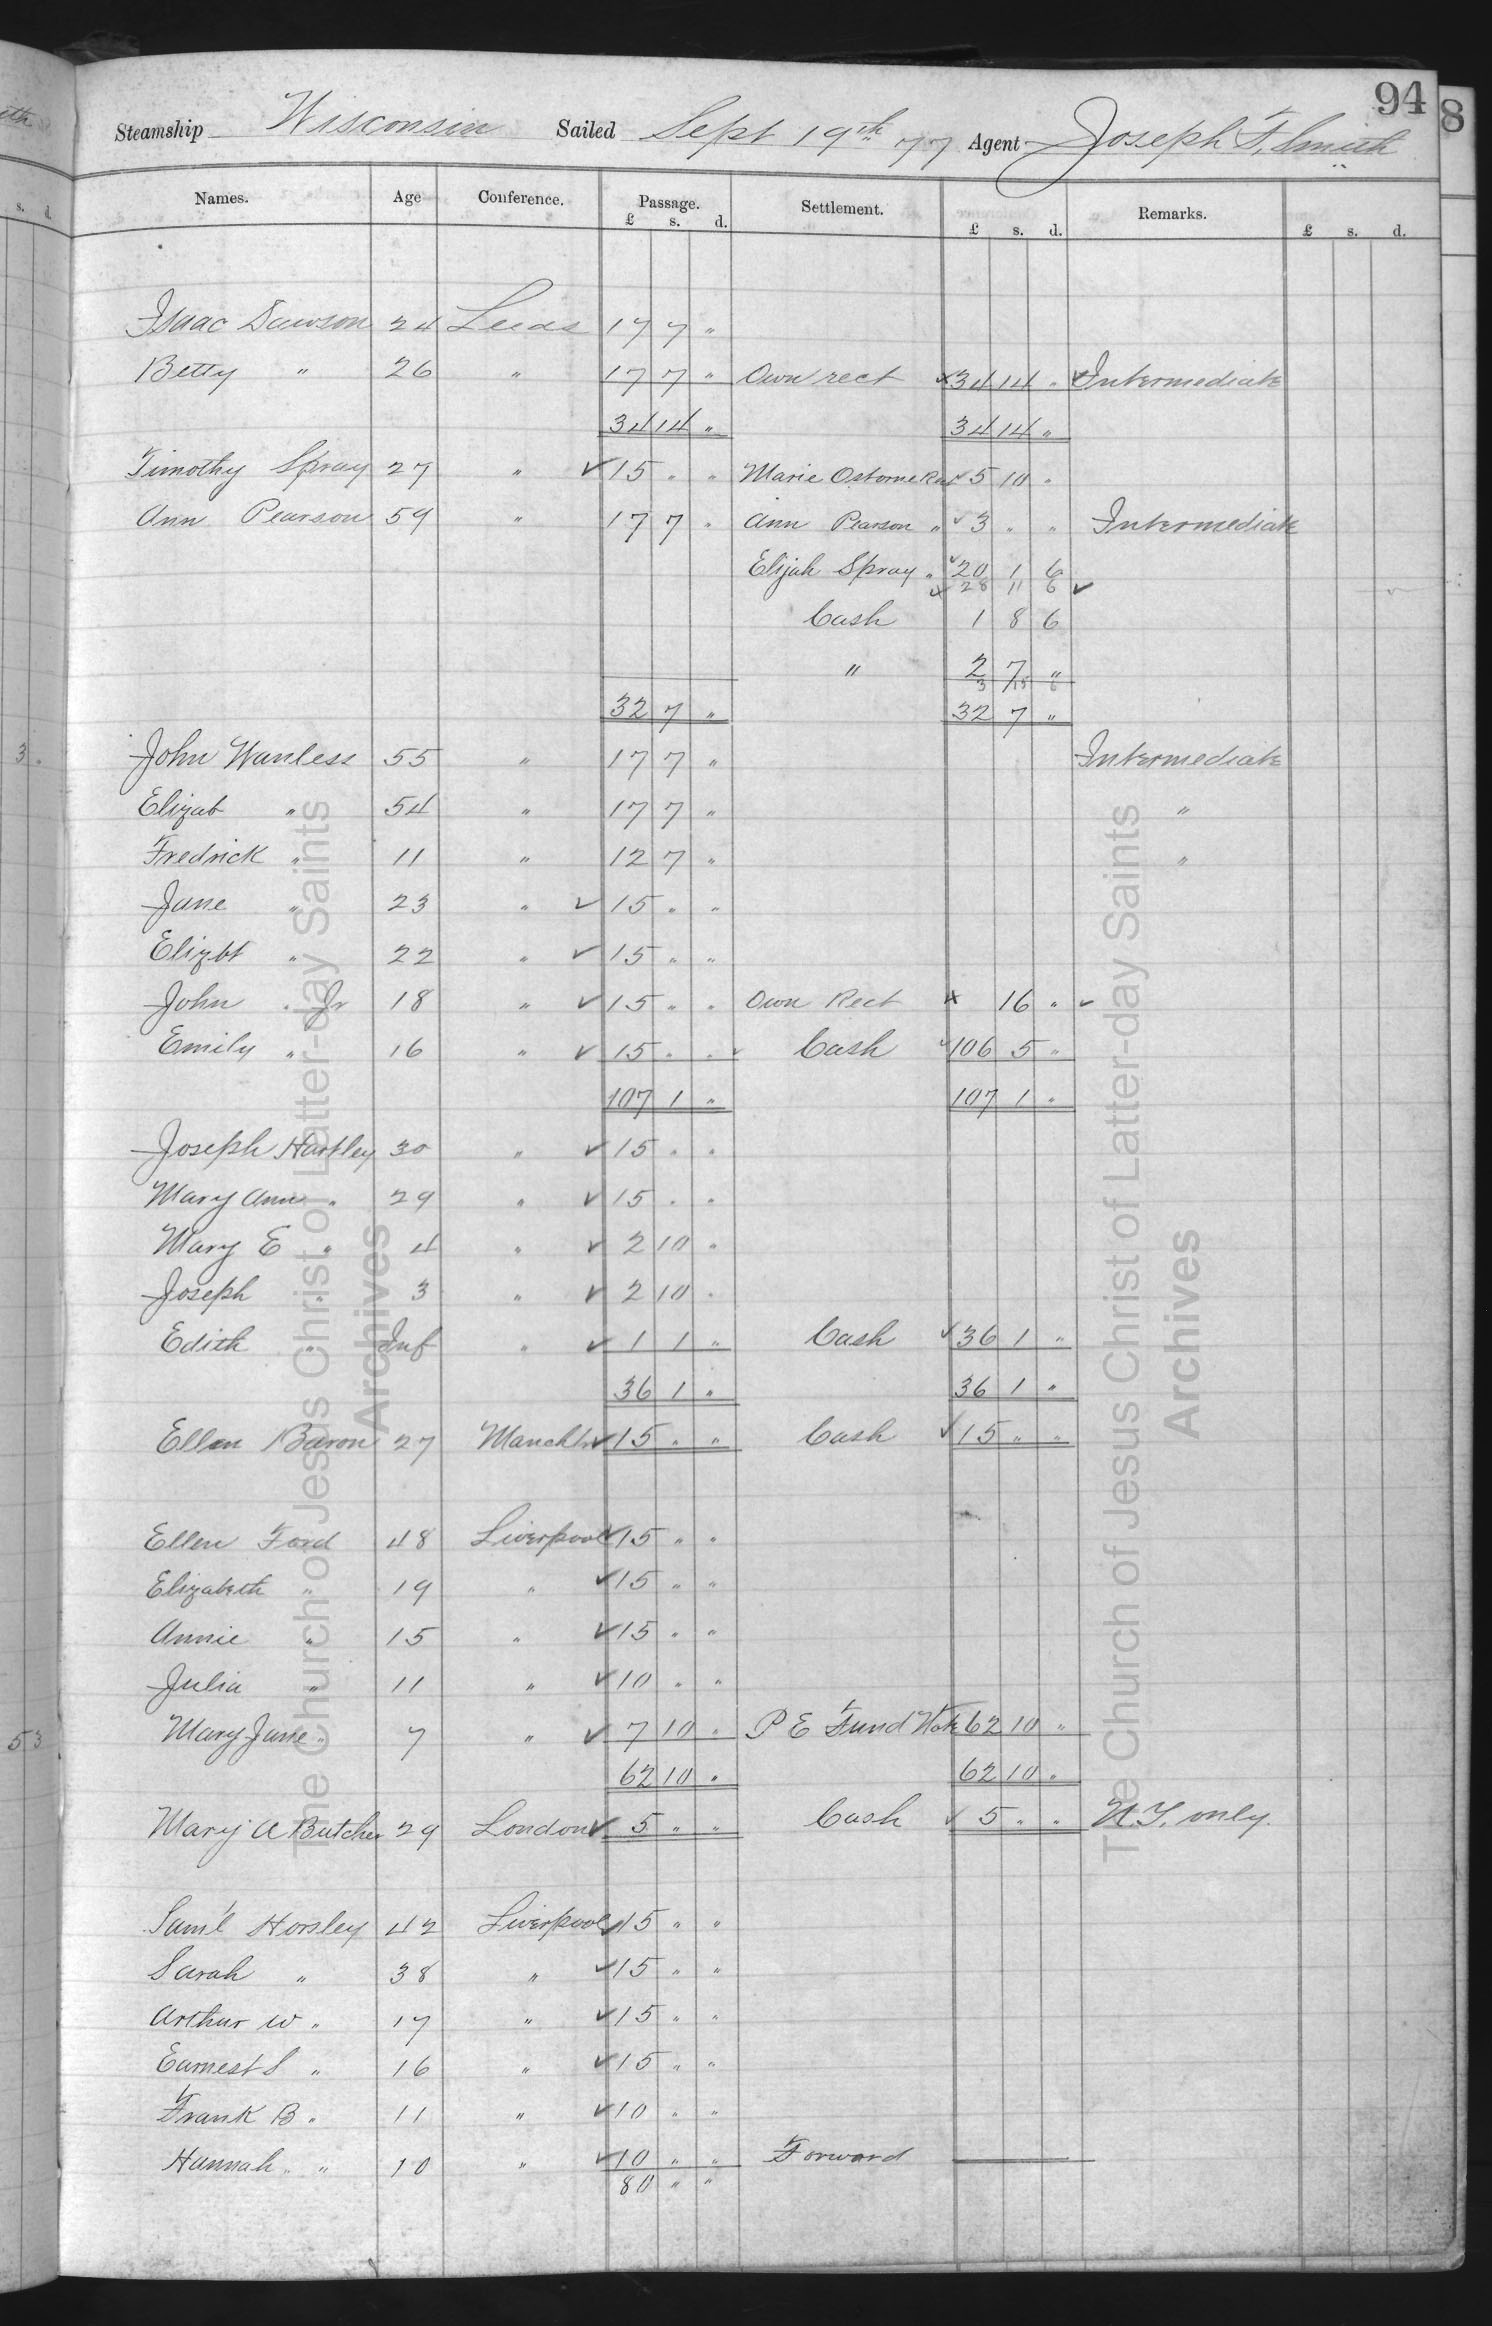 94
8
Steamship Wisconsin Sailed Sept 19th 77 Agent Joseph F. Smith
Names. Age Conference. Passage. Settlement. Remarks.
£ s. d. £ s. d. £ s. d.
Isaac Dawson 24 Leeds 17 7 "
Betty " 26 " 17 7 " Own rect x 34 14 " ✓ Intermediate
34 14 " 34 14 "
Timothy Spray 27 " ✓ 15 " " Marie Osborne Rect ✓ 5 10 "
Ann Pearson 59 " 17 7 " Ann Pearson " ✓ 3 " " Intermediate
Elijah Spray " ✓ 20 1 6
x 28 11 6 ✓
Cash 1 8 6
" 2 7 "
3 15 6
32 7 " 32 7 "
John Wanless 55 " 17 7 " Intermediate
Elizab " 54 " 17 7 " "
Fredrick " 11 " 12 7 " "
Jane " 23 " ✓ 15 " "
Elizbt " 22 " ✓ 15 " "
John " Jr 18 " ✓ 15 " " Own Rect x 16 " ✓
Emily " 16 " ✓ 15 " " ✓ Cash ✓ 106 5 "
107 1 " 107 1 "
Joseph Hartley 30 " ✓ 15 " "
Mary Ann " 29 " ✓ 15 " "
Mary E " 4 " ✓ 2 10 "
Joseph " 3 " ✓ 2 10 "
Edith " Inf " ✓ 1 1 " Cash ✓ 36 1 "
36 1 " 36 1 "
Ellen Baron 27 Manchtr ✓ 15 " " Cash ✓ 15 " "
Ellen Ford 48 Liverpool ✓ 15 " "
Elizabeth " 19 " ✓ 15 " "
Annie " 15 " ✓ 15 " "
Julia " 11 " ✓ 10 " "
Mary Jane " 7 " ✓ 7 10 " P E Fund Note 62 10 "
62 10 " 62 10 "
Mary A Butcher 29 London ✓ 5 " " Cash ✓ 5 " " N.Y. only.
Sam'l Horsley 42 Liverpool ✓ 15 " "
Sarah " 38 " ✓ 15 " "
Arthur W " 17 " ✓ 15 " "
Earnest S " 16 " ✓ 15 " "
Frank B " 11 " ✓ 10 " "
Hannah " " 10 " ✓ 10 " " Forward
80 " "
The Church of Jesus Christ of Latter-day Saints
Archives
The Church of Jesus Christ of Latter-day Saints
Archives
s. d.
3
53